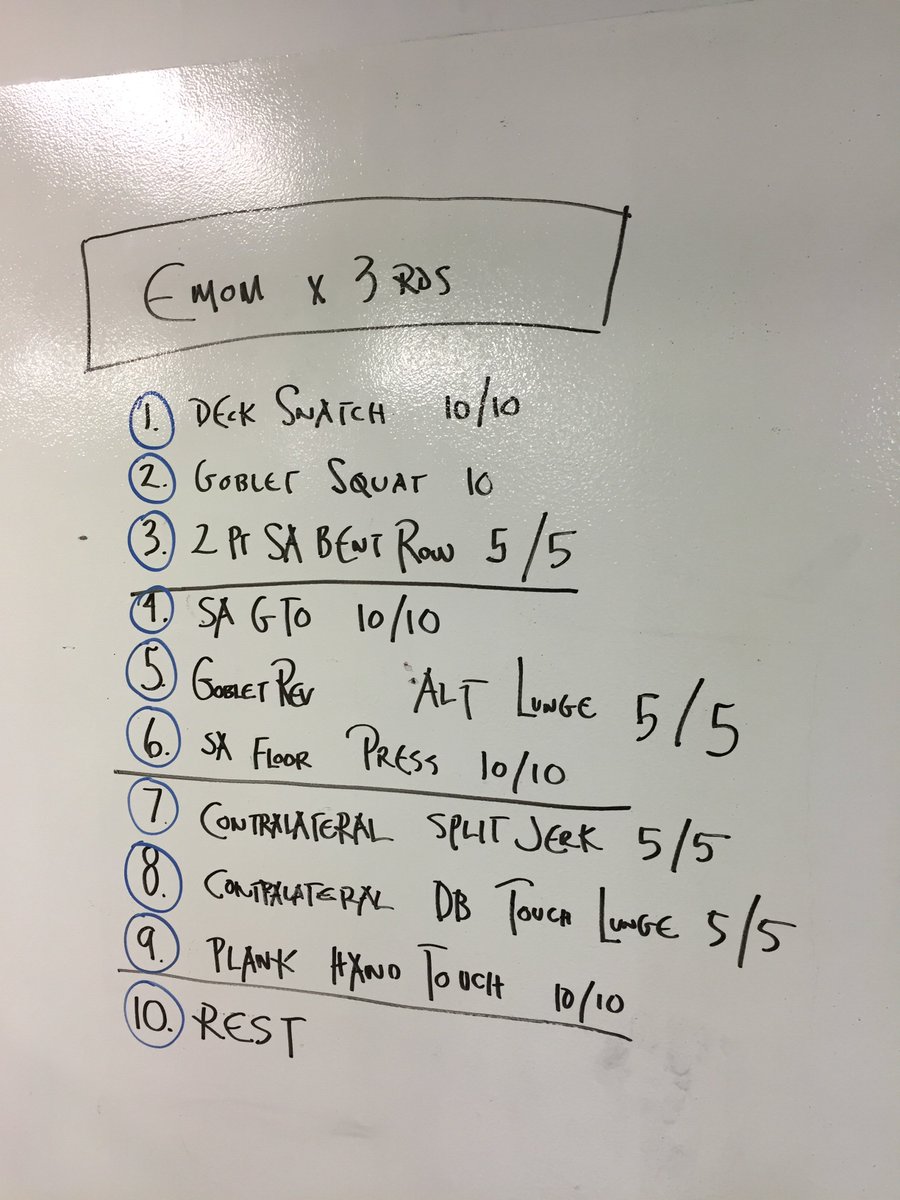 EMOM x 3 RDS
1. DECK SNATCH 10/10
2. GOBLET SQUAT 10
3. 2 Pt SA BENT ROW 5/5
4. SA GTO 10/10
5. GOBLET REV ALT LUNGE 5/5
6. SA FLOOR PRESS 10/10
7. CONTRALATERAL SPLIT JERK 5/5
8. CONTRALATERAL DB TOUCH LUNGE 5/5
9. PLANK HAND TOUCH 10/10
10. REST